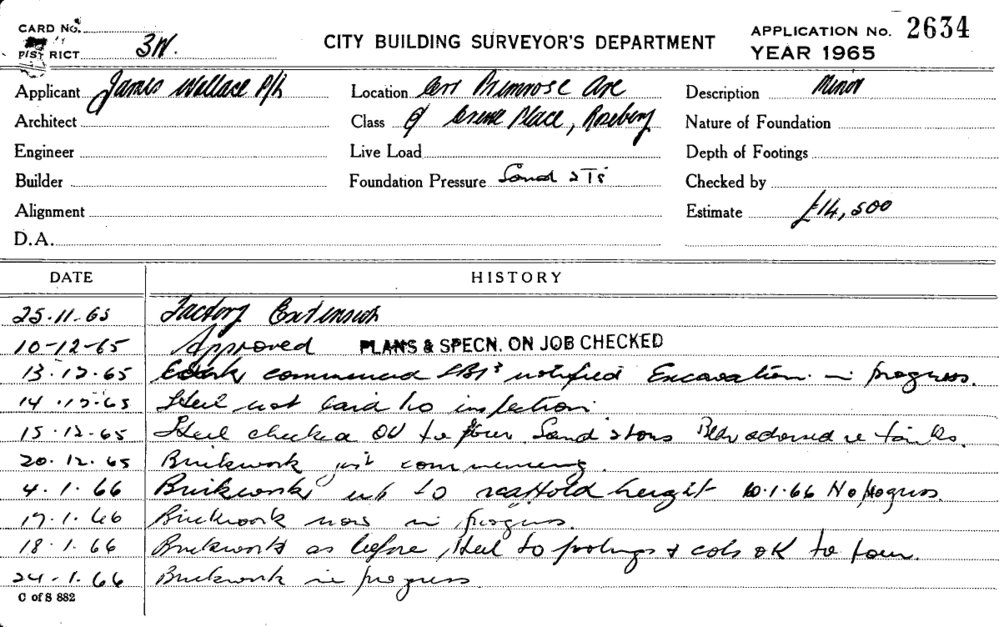 CARD No.
DISTRICT 3W.
CITY BUILDING SURVEYOR'S DEPARTMENT
APPLICATION No. 2634
YEAR 1965
Applicant James Wallace P/L Location Cnr Primrose Ave Description Minor
Architect Class & Place, Rosebery Nature of Foundation
Engineer Live Load Depth of Footings
Builder Foundation Pressure Sand 2 Ts Checked by
Alignment Estimate £14,500
D.A.
DATE HISTORY
25.11.65 Factory Extension
10-12-65 Approved PLANS & SPECN. ON JOB CHECKED
13.12.65 Work commenced notified Excavation in progress.
14.12.65 Steel not laid no inspection
15.12.65 Steel checked OK to pour Sand 2 tons
20.12.65 Brickwork just commencing.
4.1.66 Brickwork up to scaffold height 10.1.66 No progress.
17.1.66 Brickwork now in progress.
18.1.66 Brickwork as before, steel to footings & cols OK to pour.
24.1.66 Brickwork in progress.
C of S 882